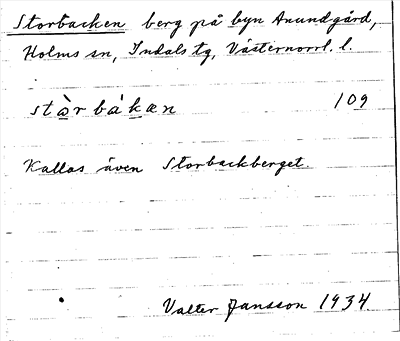 Storbacken berg på byn Anundgård,
Holms sn, Indals tg, Västernorrl. l.
stàr bákan 109
Kallas även Storbackberget.
Valter Jansson 1934